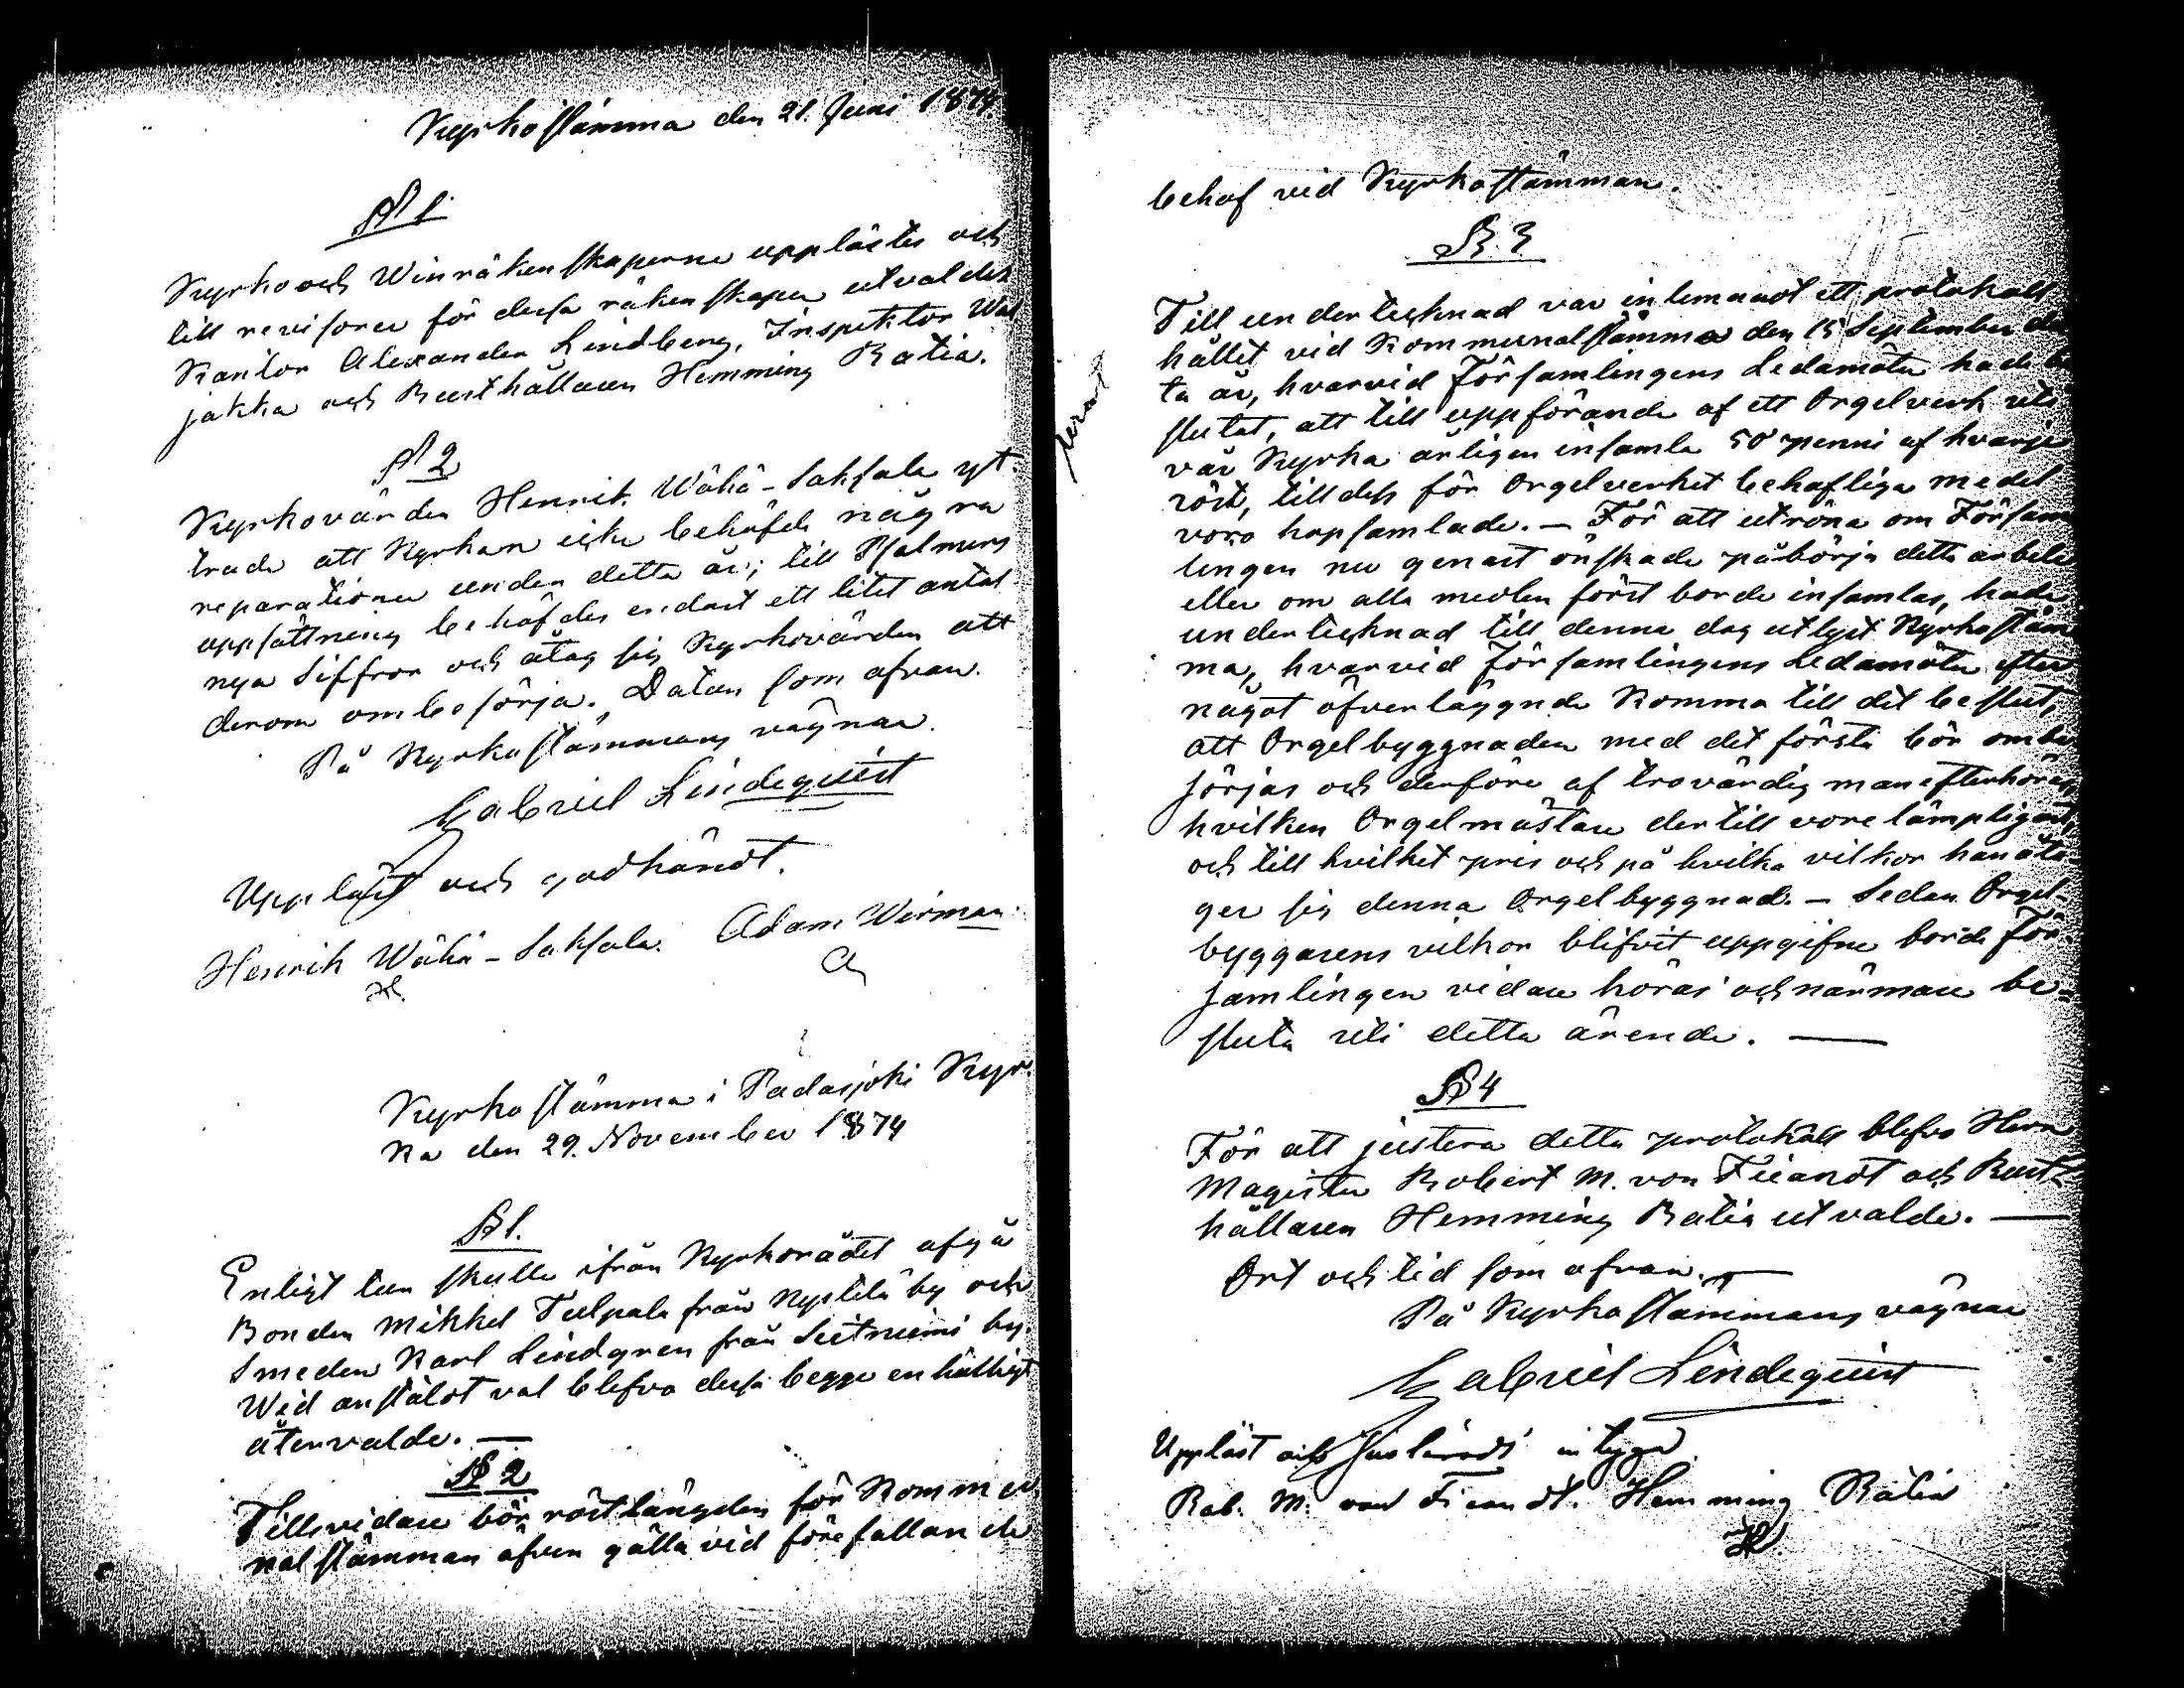 Kyrkostämma den 21. Juni 1874.
§ 1.
Kyrko och Winräkenskaperne upplästes och
till revisorer för dessa räkenskaper utvaldes
Kantor Alexander Lindberg, Inspektor Wal
jakka och Rusthållaren Hemming Ratia.
§ 2
Kyrkovärden Henrik Wähä-Saksala yt-
trade att Kyrkan icke behöfde några
reparationer under detta år; till Psalmers
uppsättning behöfdes endast ett litet antal
nya Siffror och åtog sig Kyrkovärden att
derom ombesörja. Datum som ofvan.
På Kyrkostämmans vägnar.
Gabriel Lindequist
Uppläst och godkändt.
Henrik Wähä-Saksala. Adam Wirman.
Kyrkostämma i Padasjoki Kyr-
ka den 29. November 1874
§ 1.
Enligt tur skulle ifrån Kyrkorådet afgå
Bonden Mikkel Tulpala från Nystelä by och
Smeden Karl Lindgren från Seitniemi by.
Wid anstäldt val blefvo dessa begge enhälligt
återvalde. —
§ 2
Tillsvidare bör röstlängden för Kommu-
nalstämman äfven gälla vid förefallande
behof vid Kyrkostämman.
§ 3
Till undertecknad var inlemnadt ett protokoll
hållet vid Kommunalstämma den 15 September det
ta år, hvarvid Församlingens Ledamöter hade be
slutat, att till uppförande af ett Orgelverk uti
vår Kyrka årligen insamla 50 penni af hvarje
röst, tilldess för Orgelverket behöfliga medel
voro hopsamlade. — För att utröna om Försam
lingen nu genast önskade påbörja detta arbete
eller om alla medlen först borde insamlas, hade
undertecknad till denna dag utlyst Kyrkostäm
ma, hvarvid Församlingens Ledamöter efter
något öfverläggnde komma till det beslut,
att Orgelbyggnaden med det första bör ombe
sörjas och derföre af trovärdig man efterhöras,
hvilken Orgelmästare dertill vore lämpligast,
och till hvilket pris och på hvilka vilkor han åta
ger sig denna Orgelbyggnad. — Sedan Orgel-
byggarens vilkor blifvit uppgifne borde För-
samlingen vidare höras och närmare be-
sluta uti detta ärende. —
§ 4
För att justera detta protokoll blefvo Herr
Magister Robert M. von Fieandt och Rust-
hållaren Hemming Ratia utvalde. —
Ort och tid som ofvan. —
På Kyrkostämmans vägnar
Gabriel Lindequist
Uppläst och Justeradt intyga
Rob. M. von Fieandt. Hemming Ratia